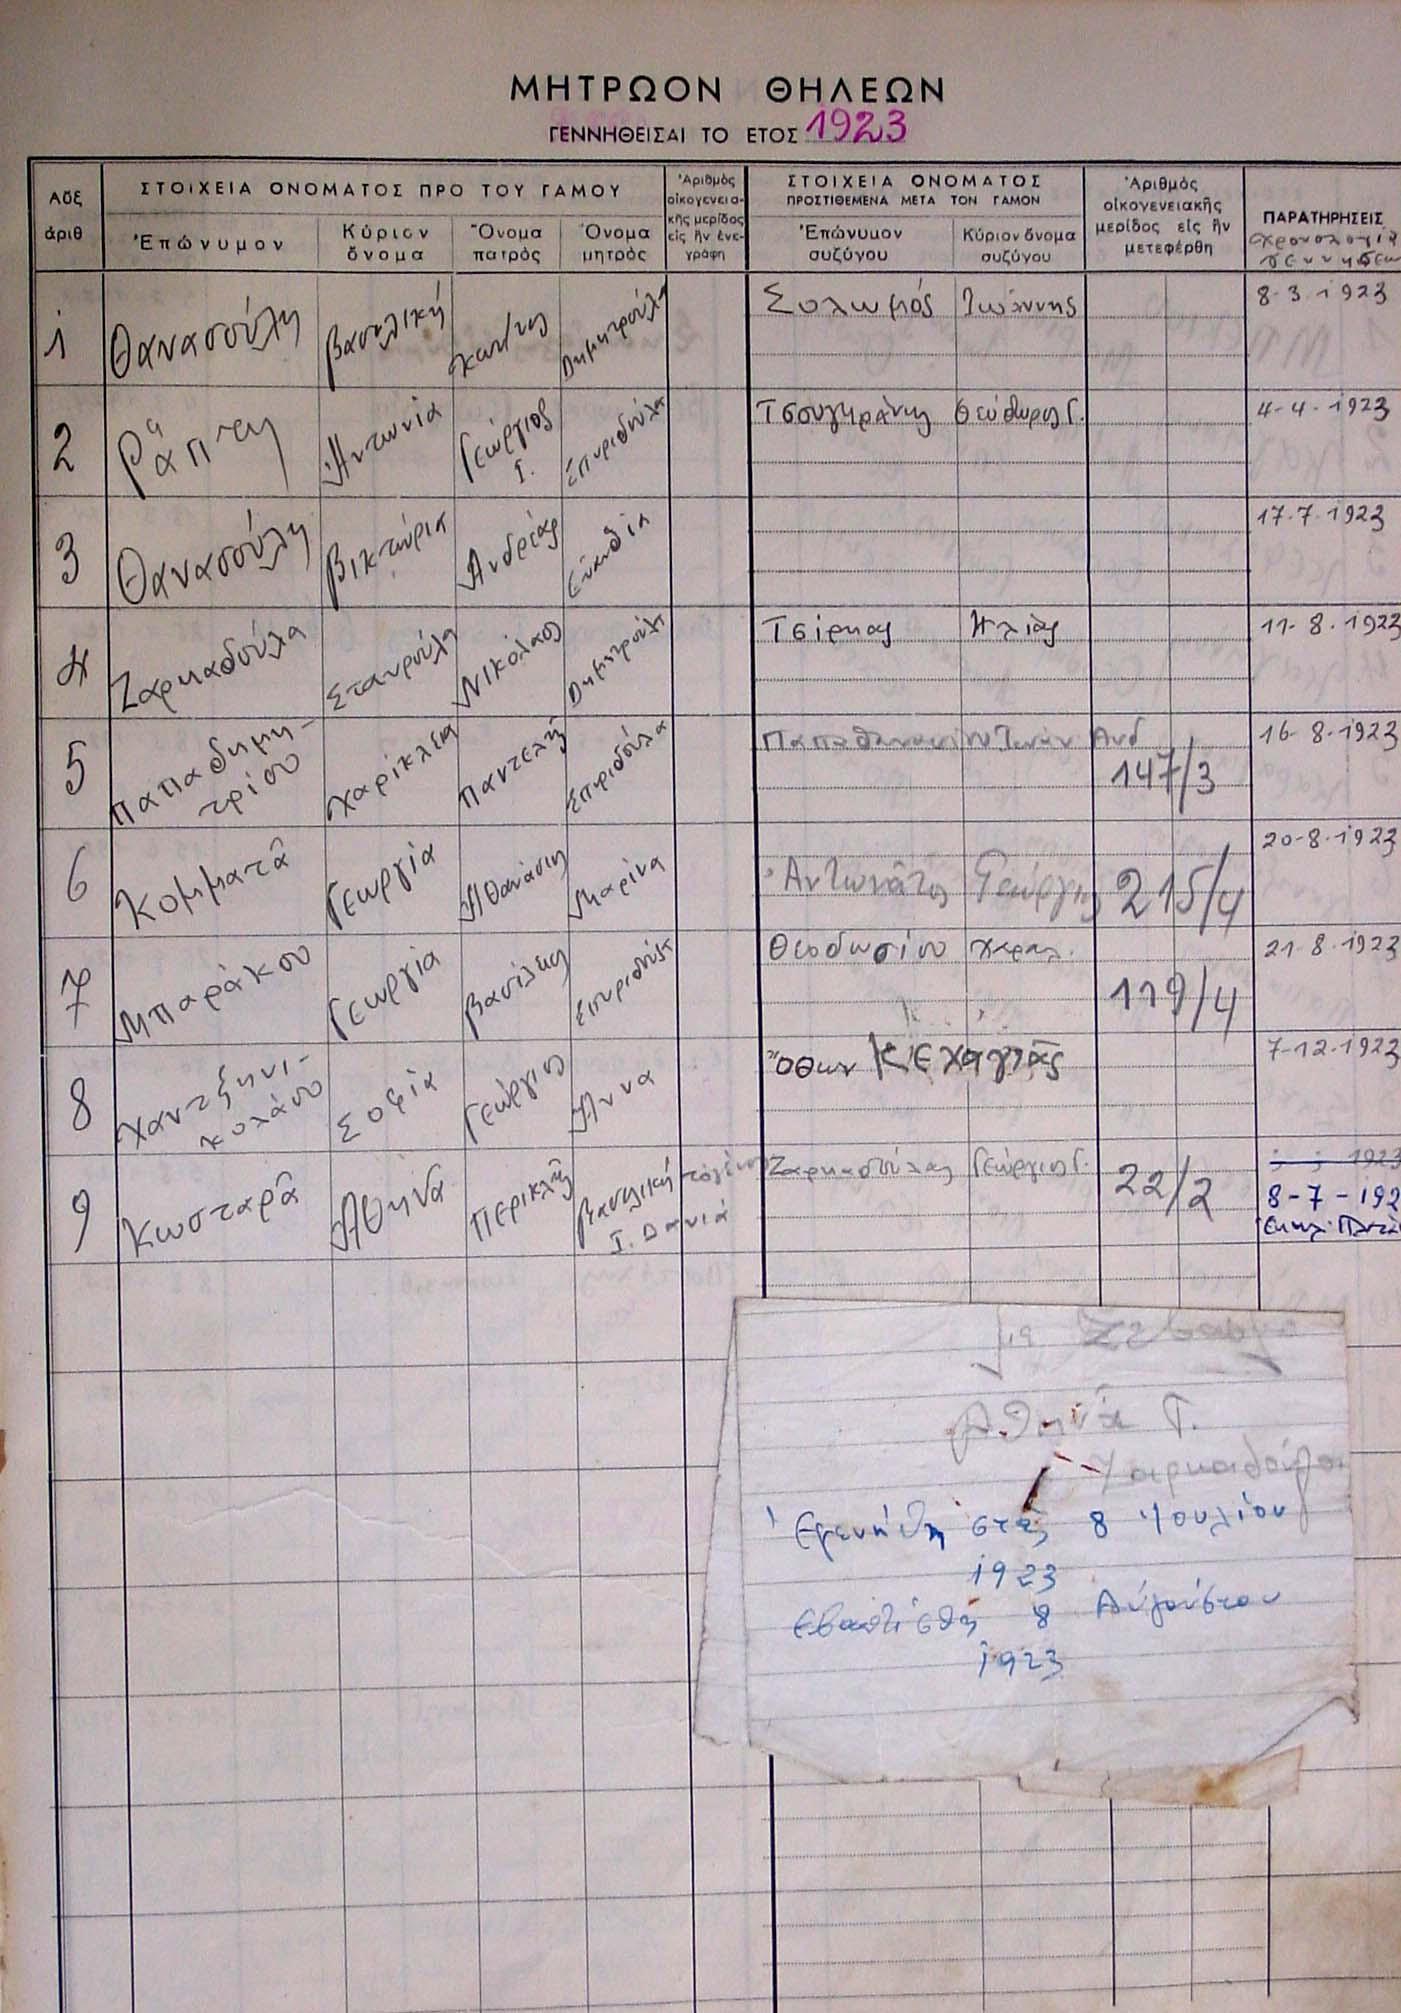 ΜΗΤΡΩΟΝ ΘΗΛΕΩΝ
ΓΕΝΝΗΘΕΙΣΑΙ ΤΟ ΕΤΟΣ 1923
Αὔξ ἀριθ
ΣΤΟΙΧΕΙΑ ΟΝΟΜΑΤΟΣ ΠΡΟ ΤΟΥ ΓΑΜΟΥ
Ἐπώνυμον
Κύριον ὄνομα
Ὄνομα πατρὸς
Ὄνομα μητρὸς
Ἀριθμὸς οἰκογενεια-
κῆς μερίδος
εἰς ἣν ἐνε-
γράφη
ΣΤΟΙΧΕΙΑ ΟΝΟΜΑΤΟΣ
ΠΡΟΣΤΙΘΕΜΕΝΑ ΜΕΤΑ ΤΟΝ ΓΑΜΟΝ
Ἐπώνυμον συζύγου
Κύριον ὄνομα συζύγου
Ἀριθμὸς
οἰκογενειακῆς
μερίδος εἰς ἣν
μετεφέρθη
ΠΑΡΑΤΗΡΗΣΕΙΣ
1 Θανασούλη Βασιλική Κων/τος Δημητρούλα Σολωμός Ἰωάννης 8-3-1923
2 Ράπτη Ἀντωνία Γεώργιος Ι. Σπυριδούλα Θεόδωρος Γ. 4-4-1923
3 Θανασούλη Βικτώρια Ἀνδρέας Εὐανθία 17-7-1923
4 Ζαρκαδούλα Σταυρούλα Νικόλαος Δημητρούλα Τσίρκας Ἠλίας 11-8-1923
5 Παπαδημη-
τρίου Χαρίκλεια Παντελῆς Σπυριδούλα 147/3 16-8-1923
6 Κομματᾶ Γεωργία Ἀθανάσιος Μαρίνα Ἀντωνᾶτος Γεώργιος 215/4 20-8-1923
7 Μπαράκου Γεωργία Βασίλειος Σπυριδούλα Θεοδωσίου Χαραλ. 119/4 21-8-1923
8 Χαντζηνι-
κολάου Σοφία Γεώργιος Ἄννα Ὄθων Κεχαγιᾶς 7-12-1923
9 Κωσταρᾶ Ἀθηνᾶ Περικλῆς Βασιλική Ι. Δανιά Ζαρκαδούλας Γεώργιος Γ. 22/2 1923
8-7-192
Ἀθηνᾶ Γ.
Ζαρκαδούλα
Ἐγενήθη στάς 8 Ἰουλίου
1923
Εβαπτίσθη 8 Αὐγούστου
1923